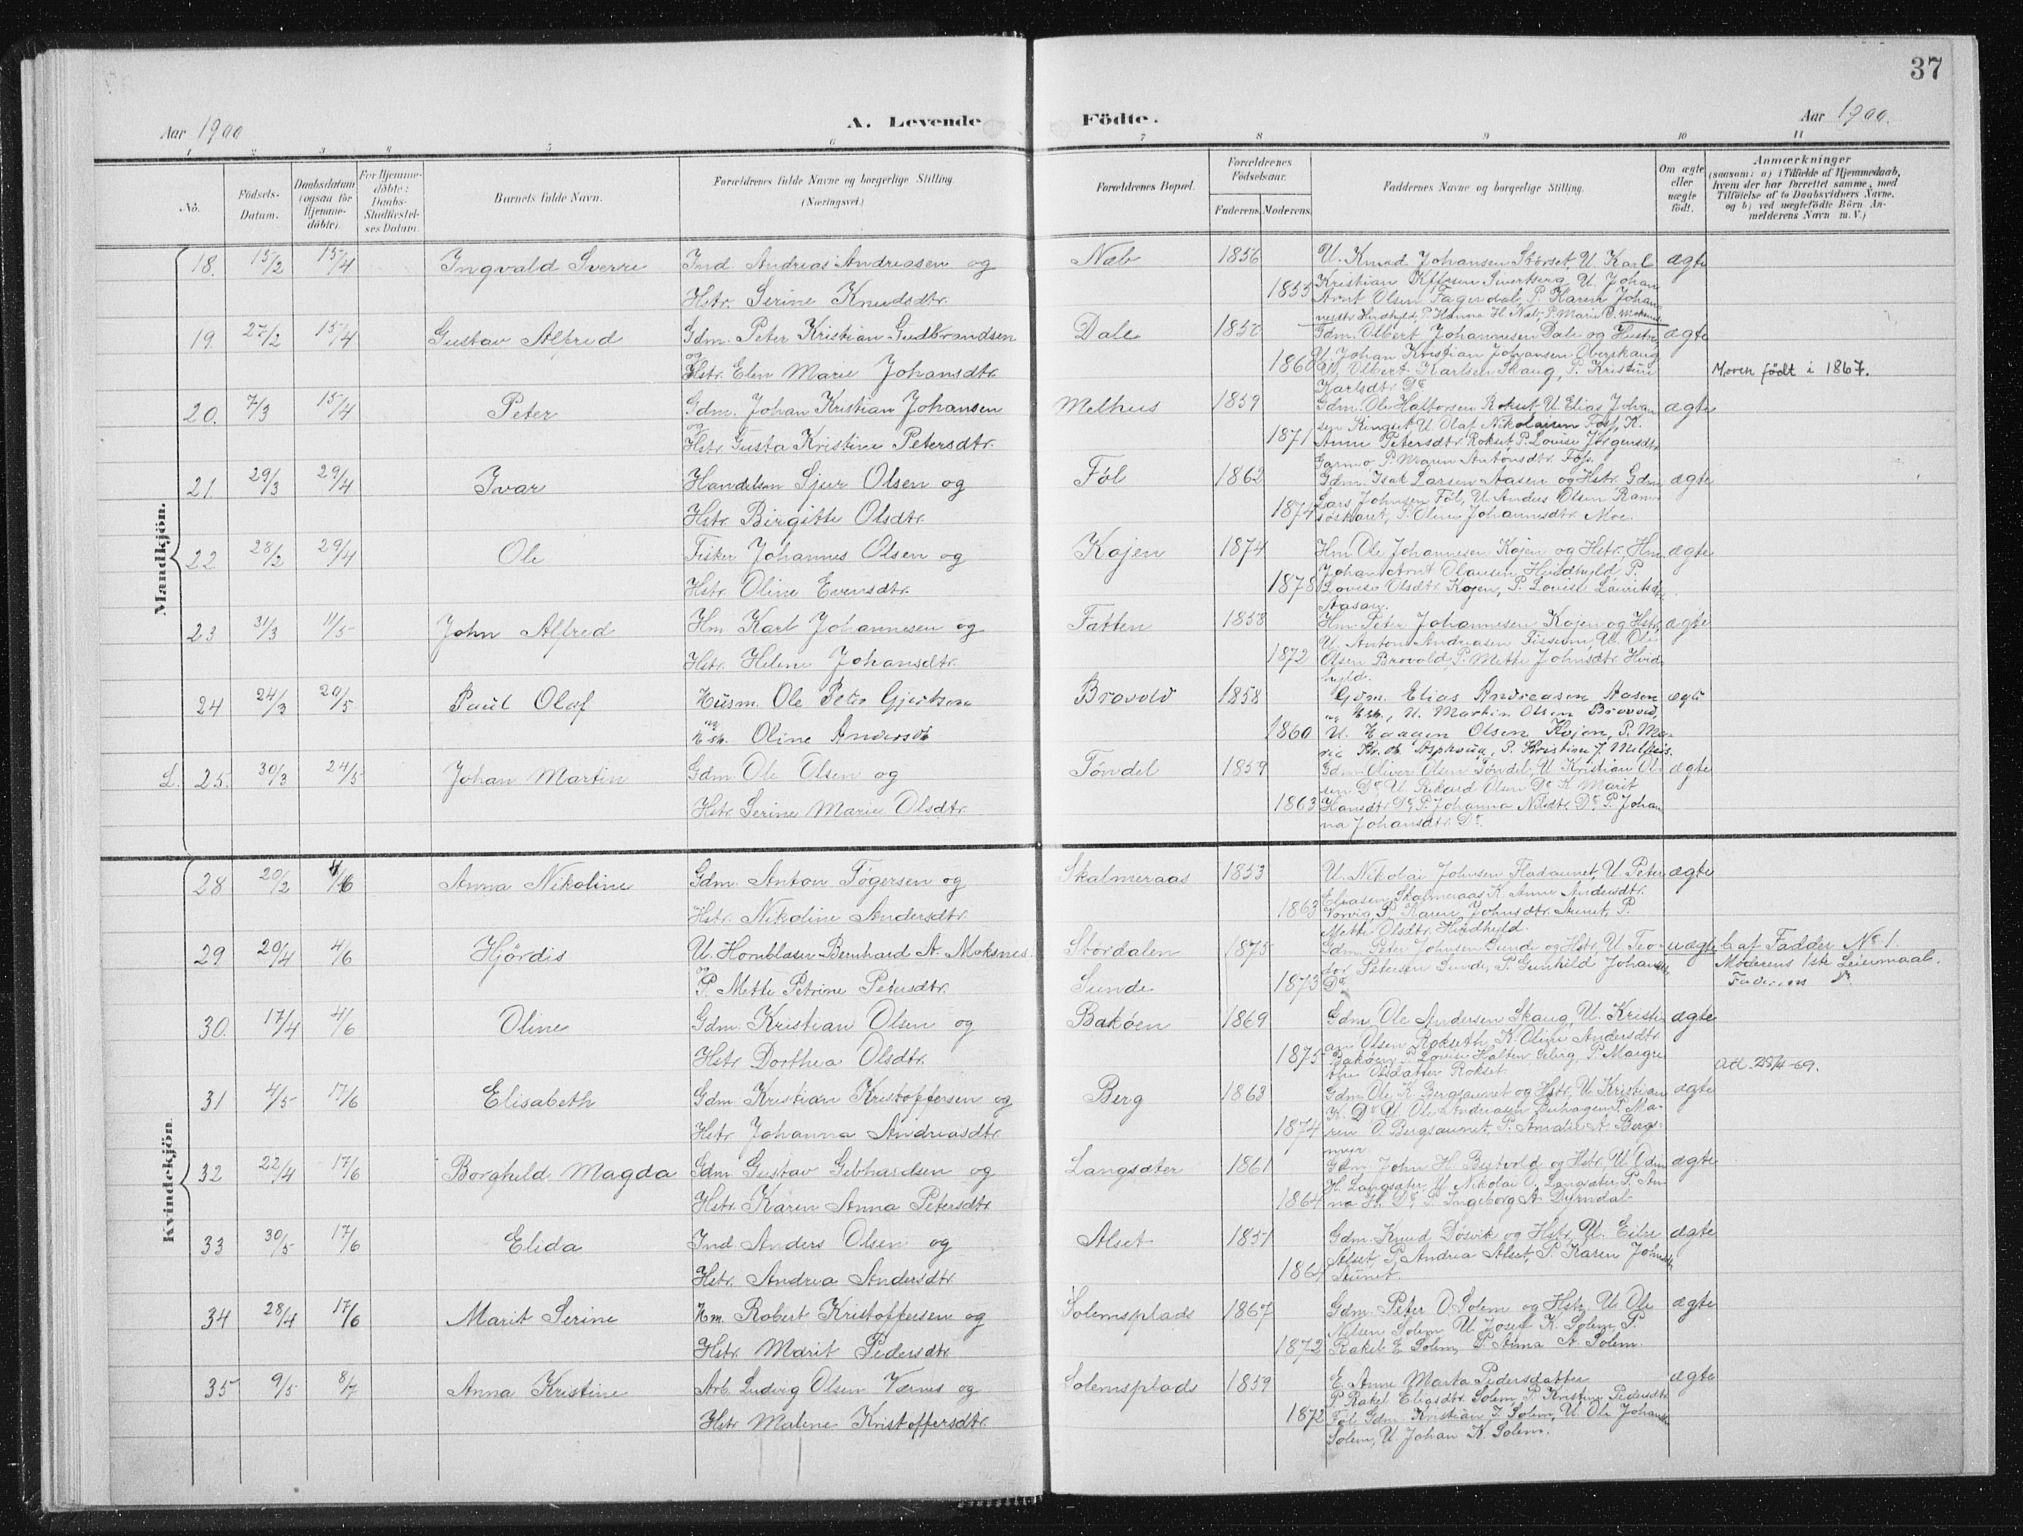 37
Aar 1900
A. Levende Födte.
Aar 1900.
1 2 3 4 5 6 7 8 9 10 11
No.
Födsels-Datum.
Daabsdatum (ogsaa for Hjemmedöbte).
For Hjemmedöbte: Daabs-Stadfæstelses Datum.
Barnets fulde Navn.
Forældrenes fulde Navne og borgerlige Stilling. (Næringsvei.)
Forældrenes Bopæl.
Forældrenes Födselsaar.
Faderens. Moderens.
Faddernes Navne og borgerlige Stilling.
Om ægte eller uægte födt.
Anmærkninger
(saasom: a) i Tilfælde af Hjemmedaab, hvem der har forrettet samme, med Tilföielse af to Daabsvidners Navne, og b) ved uægtefödte Börn Anmelderens Navn m. V.)
Mandkjön.
18. 15/2 15/4 Ingvald Sverre Ind. Andreas Andreasen og Næb 1856 U. Knud Johansen Störset, U. Karl ægte
Hstr. Serine Knudsdtr. 1855 Kristian Sivertberg, U. Johan
Arnt Olsen Fagerdal, P. Karen Johan
19 27/2 15/4 Gustav Alfred Gdm. Peter Kristian Gudbrandsen Dale Gdm. Olbert Johannesen Dale og Hustr. ægte
og U. Johan Kristian Johansen Oberskaug
Hstr. Elen Marie Johansdtr. 1860 U. Olbert Karlsen Skaug, P. Kristine Moren födt i 1867.
Karlsdtr. Do
20. 7/3 15/4 Peter Gdm. Johan Kristian Johansen Melhus 1859 Gdm. Ole Halvorsen Rokset U. Elias Johan ægte
og sen Ringset U. Olaf Nikolaisen Fos, K.
Hstr. Gusta Kristine Petersdtr. 1871 Anne Petersdtr. Rokset P. Lovise Jörgensdtr.
Garmo P. Maren Antonsdtr. Fos.
21. 29/3 29/4 Ivar Handelsm Sjur Olsen og Föl 1862 Gdm. Isak Larsen Aasen og Hstr. Gdm. ægte
Hstr. Birgitte Olsdtr. 1874 Lars Johnsen Föl, U. Anders Olsen Ram
söskaret, P. Oline Johannesdtr. Moe.
22 28/2 29/4 Ole Fisker Johannes Olsen og Kojen 1874 Hm. Ole Johannesen Kojen og Hstr. Hm. ægte
Johan Arnt Olausen Hvidhyld P.
Hstr. Oline Evensdtr. 1878 Lovise Olsdtr. Kojen, P. Lovise
Aasan.
23 31/3 11/5 John Alfred Hm. Karl Johannesen og Fatten 1858 Hm. Peter Johannesen Kojen og Hstr. ægte
U. Anton Andreasen U. Ole
Hstr. Helene Johansdtr. 1872 Olsen Brovold, P. Mette Johnsdtr. Hvid
hyld.
24 24/3 20/5 Paul Olaf Husm. Ole Peter Gjertsen Brovold 1858 Gdm. Elias Andreasen Aasen ægte
og og U. Martin Olsen Brovold,
Oline Andersd 1860 U. Haagen Olsen Kojen, P. Ma-
P. Kristine J. Melhus.
L. 25. 30/3 24/5 Johan Martin Gdm. Ole Olsen og Töndel 1859 Gdm. Oliver Olsen Töndel, U. Kristian Ol ægte
sen Do U. Rikard Olsen Do K. Marit
Hstr. Serine Marie Olsdtr. 1863 Hansdtr. Do, P. Johanna Nilsdtr. Do P. Johan
na Johansdtr. Do.
Kvindekjön.
28 20/2 4/6 Anna Nikoline Gdm. Anton Tögersen og Skalmeraas 1853 U. Nikolai Johnsen Fladaunet, U. Peter ægte
Eliasen Skalmeraas K. Anne Andersdtr.
Hstr. Nikoline Andersdtr. 1863 Vorvig P. Karen Johnsdtr. Aunet, P.
Mette Olsdtr. Hvidhyld.
29 20/4 4/6 Hjördis U. Hornblæser Bernhard A. Moksnes. Stordalen 1875 Gdm. Peter Johnsen Sunde og Hstr. U. Teo- uægte af Fadder No 1.
og dor Petersen Sunde, P. Gunhild Johansdtr. Moderens 1ste Leiermaal.
P. Mette Petrine Petersdtr. Sunde 1873 Do Faderens
30. 17/4 4/6 Oline Gdm. Kristian Olsen og Baköen 1869 Gdm. Ole Andersen Skaug, U. Kristi- ægte
an Olsen Rokseth, K. Oline Andersdtr.
Hstr. Dorthea Olsdtr. 1875 Baköen P. Lovise Halten P. Margre
the Olsdatter Rokset.
31 4/5 17/6 Elisabeth Gdm. Kristian Kristoffersen og Berg 1863 Gdm. Ole K. Bergsaunet og Hstr. U. Kristian ægte
K. Do U. Ole Andreasen P. Ma-
Hstr. Johanna Andreasdtr. 1874 ren O. Bergsaunet, P. Amalie A. Bergs-
myr
32 22/4 17/6 Borghild Magda Gdm. Gustav Gebhardsen og Langsæter 1861 Gdm. John H. og Hstr. U. Odin ægte
H. Langsæter, U. Nikolai O. Langsæter P. An
Hstr. Karen Anna Petersdtr. 1864 na H. Do, P. Ingeborg A. Dyrndal.
33 30/5 17/6 Elida Ind. Anders Olsen og Alset 1851 Gdm. Knud Dösvik og Hstr. U. ægte
Alset, P. Andrea Alset, P. Karen Johnsdtr.
Hstr. Andrea Andersdtr. 1864 Aunet.
34 28/4 17/6 Marit Serine Hm. Robert Kristoffersen og Solemsplads 1867 Gdm. Peter O Solem og Hstr. U. Ole ægte
Nelsen Solem, U. Josef K. Solem, P.
Hstr. Marit Pedersdtr. 1872 Rakel E Solem, P. Anna A. Solem.
35 9/5 8/7 Anna Kristine Arb. Ludvig Olsen Værnes og Solemsplads 1859 E. Anne Marta Pedersdatter ægte
P. Rakel Eliasdtr. Solem, P. Kristine Pedersdtr.
Hstr. Malene Kristoffersdtr. 1872 Föl Gdm. Kristian I. Solem, U. Ole Johansen
Solem, U. Johan K. Solem.